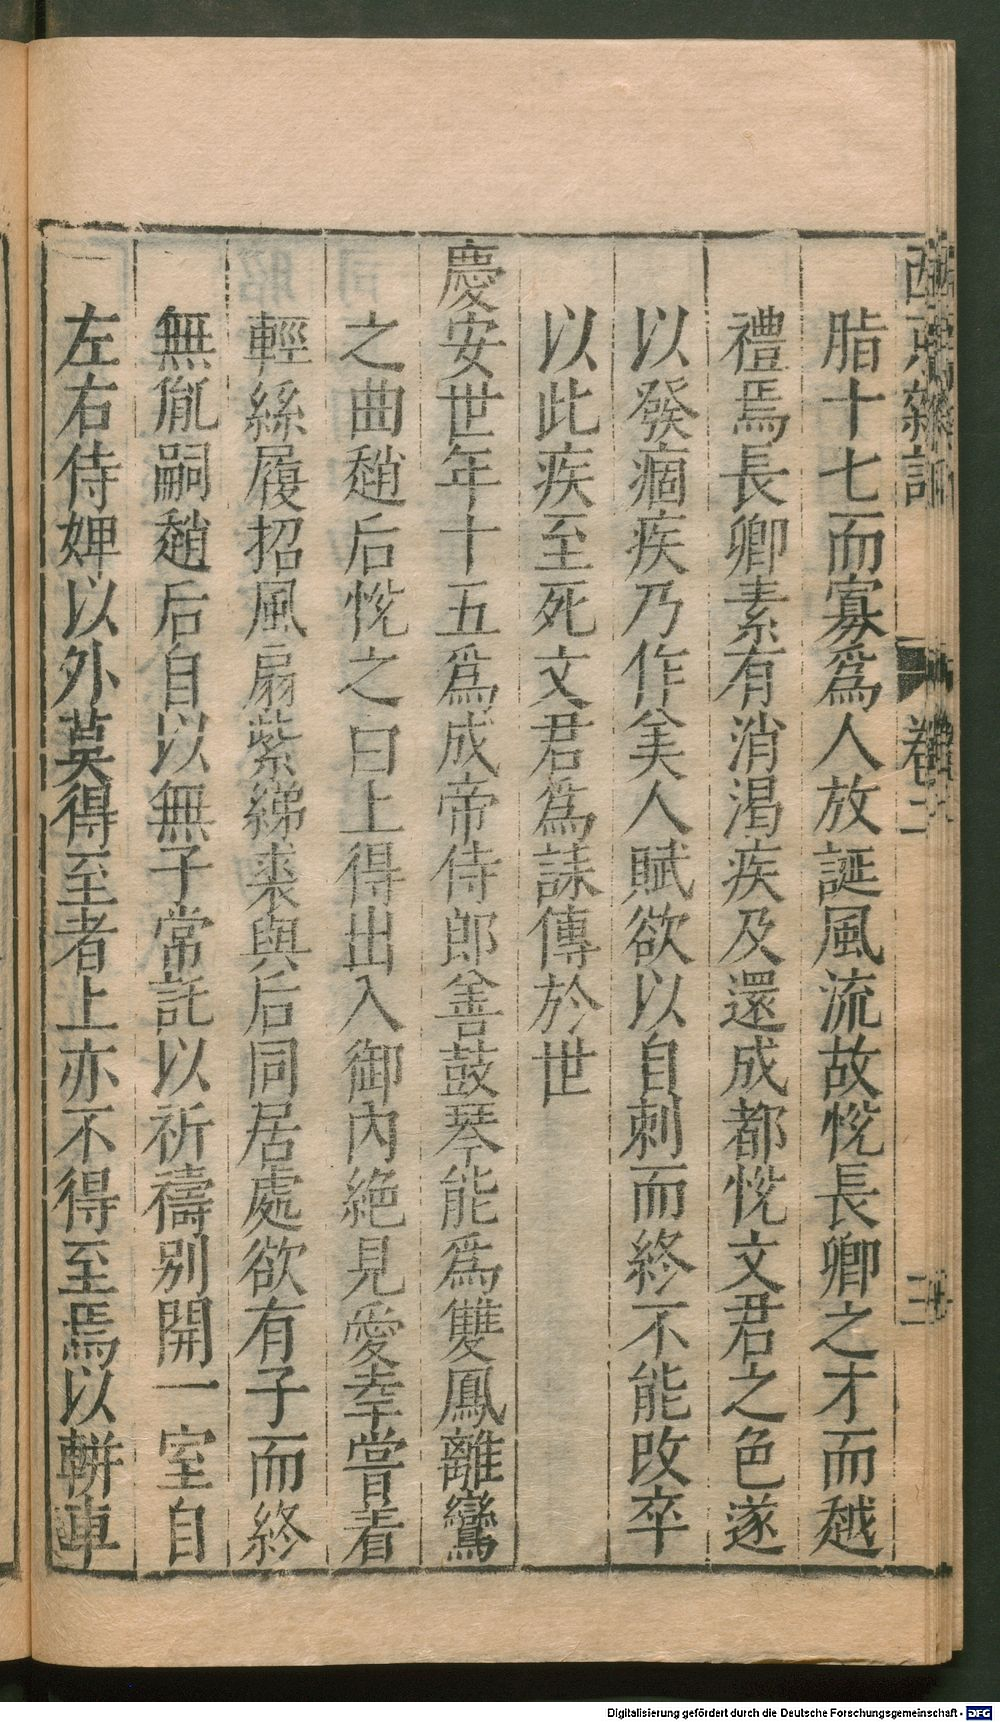 脂十七而寡爲人放誕風流故悅長卿之才而越
禮焉長卿素有消渴疾及還成都悅文君之色遂
以發痼疾乃作美人賦欲以自刺而終不能改卒
以此疾至死文君爲誄傳於世
慶安世年十五爲成帝侍郎善鼓琴能爲雙鳳離鸞
之曲趙后悅之白上得出入御內絕見愛幸嘗着
輕絲履招風扇紫綈裘與后同居處欲有子而終
無胤嗣趙后自以無子常託以祈禱別開一室自
左右侍婢以外莫得至者上亦不得至焉以軿車
西京雜記 卷二 二
Digitalisierung gefördert durch die Deutsche Forschungsgemeinschaft - DFG